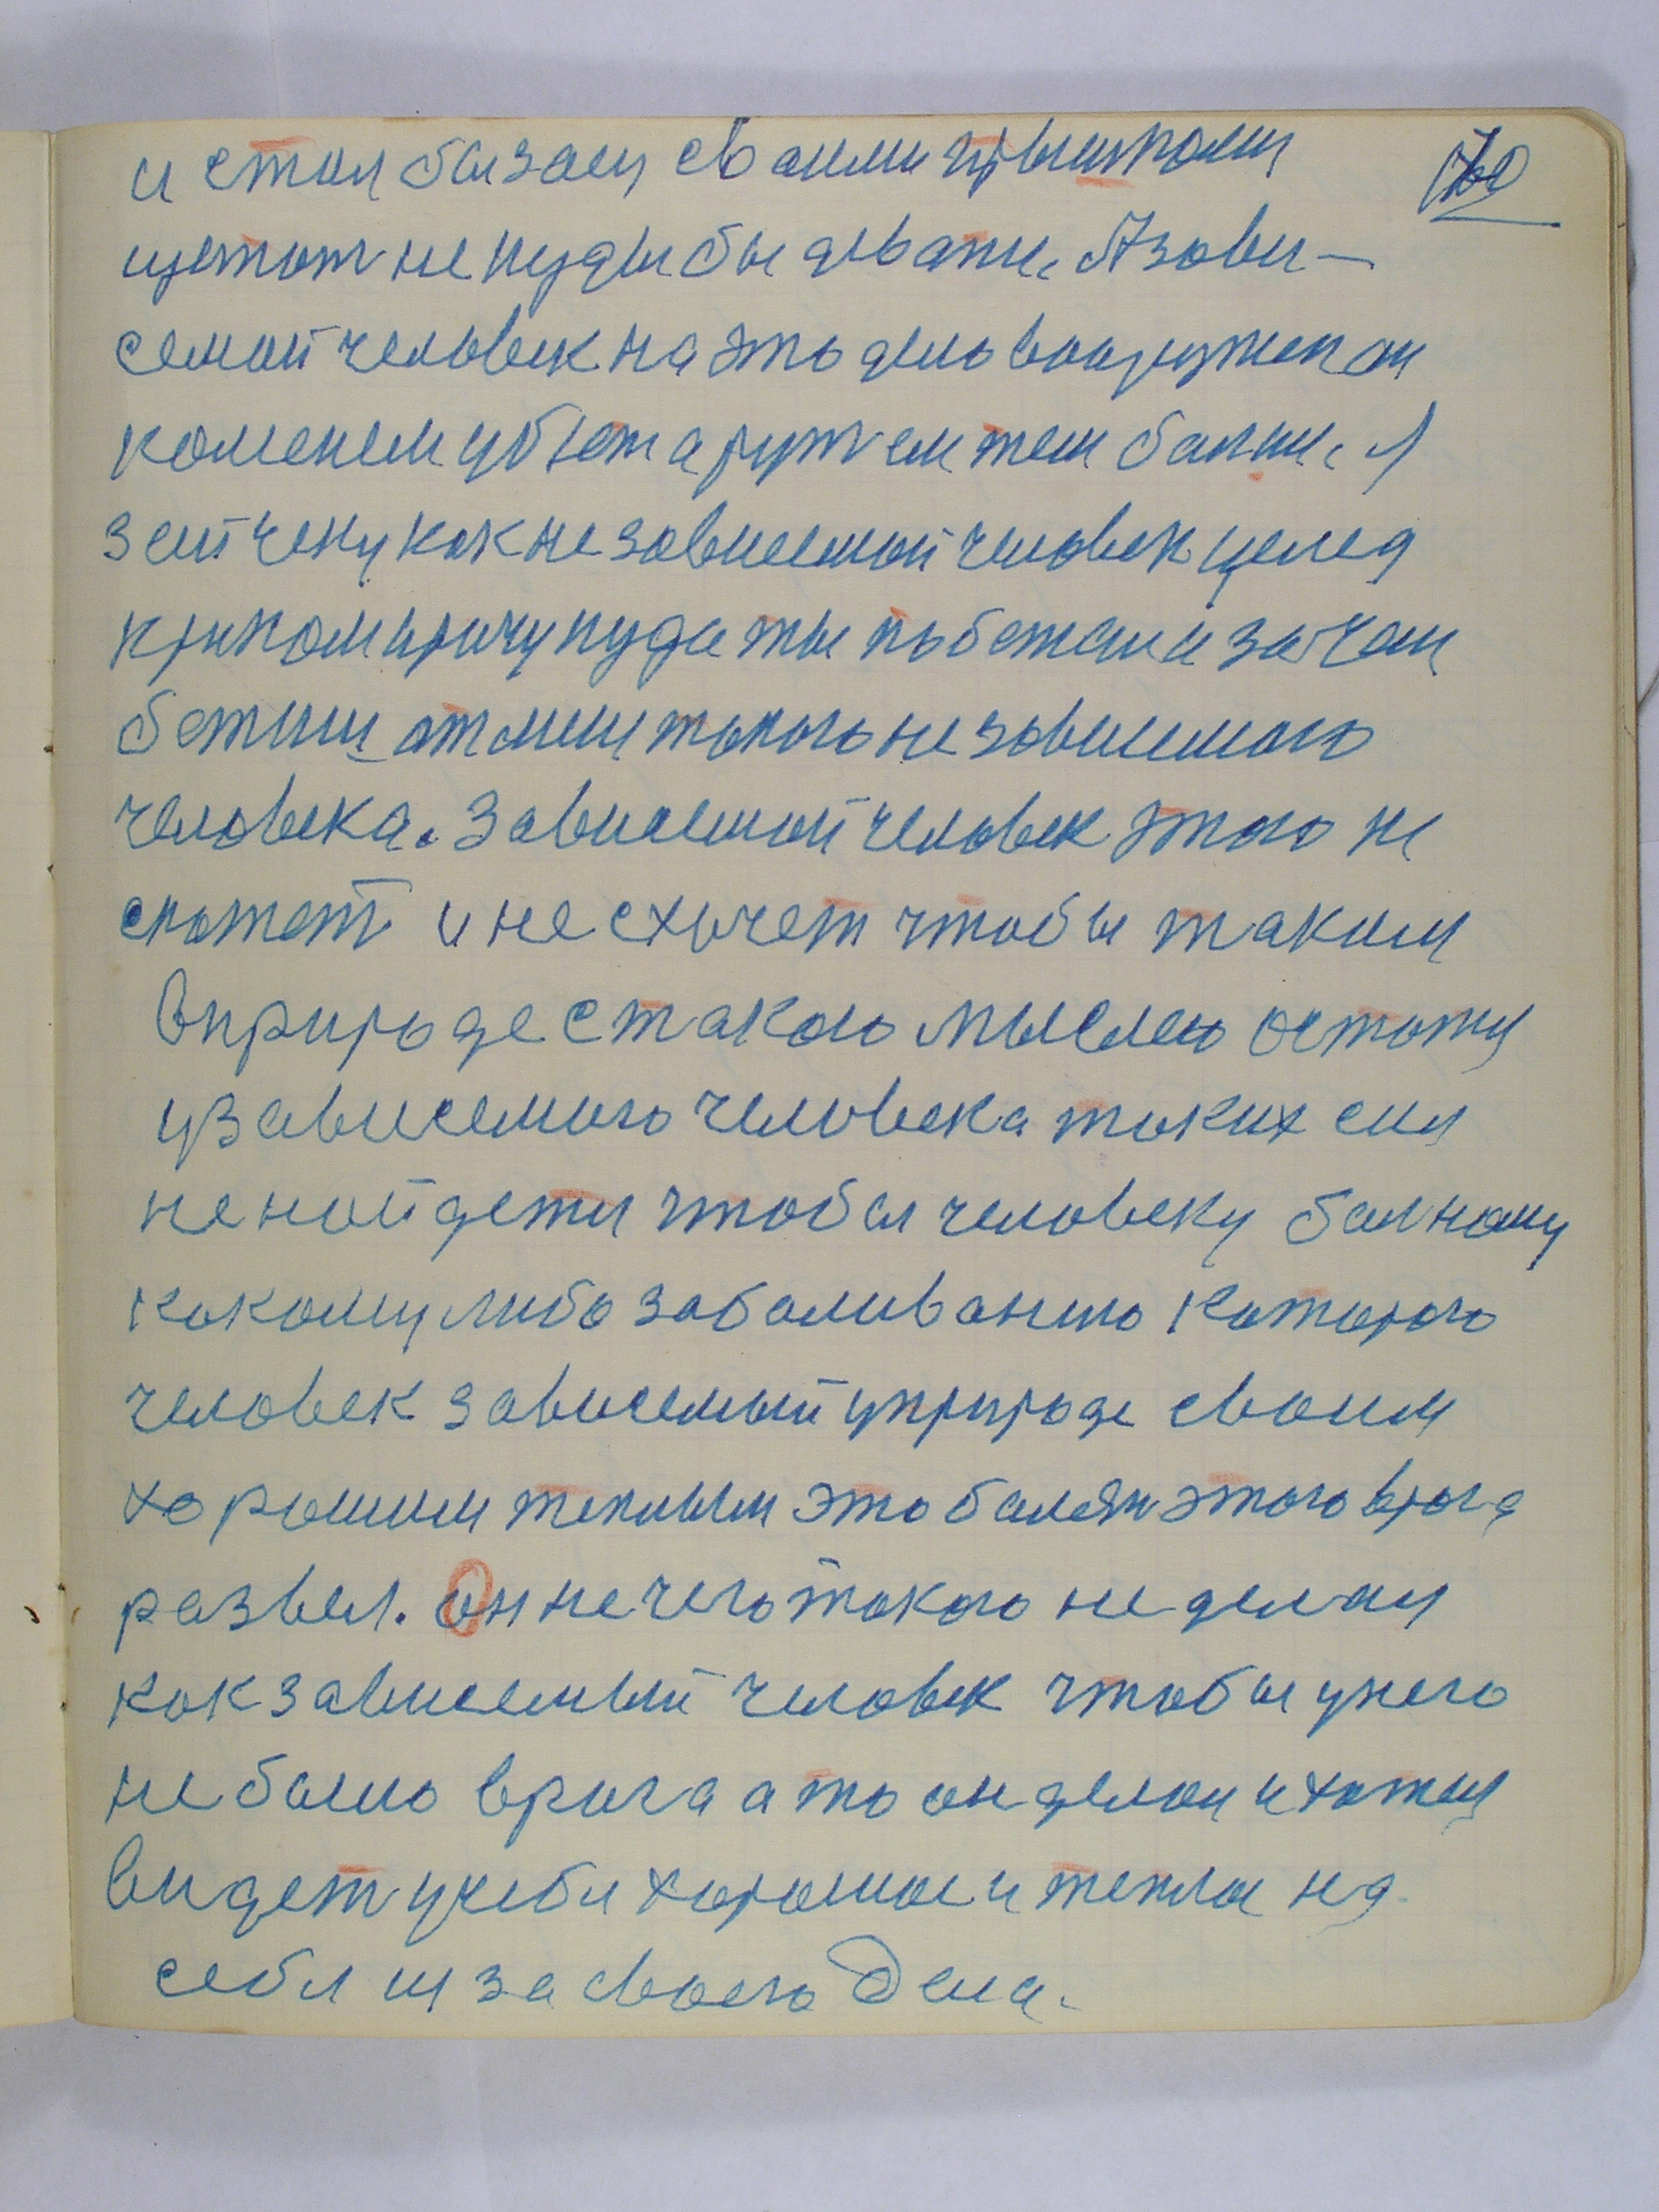 и стал бы заец своими прышками
цетот не куды бы девати. А зави-
семой человек на это дело вооружен он
каменем убьет а ружем тем более. Я
зейчену как незовисемой человек целед
криком кричу куда ты побежал и зачем
бежиш от мени токого незовисемого
человека. Зовисемой человек этого не
скажет и не схочет чтобы таким
в природе с такою мыслею остотця
у зависемого человека токих сил
не нойдетця чтобы человеку болному
какому либо заболиванию которого
человек зависемый у природе своим
хорошим теплым это болезн этого врага
развел. Он нечего токого не делал
как зависемый человек чтобы у него
не было врага а то он делал и хотил
видет у себя хорошое и теплое на
себя и за своего дела.